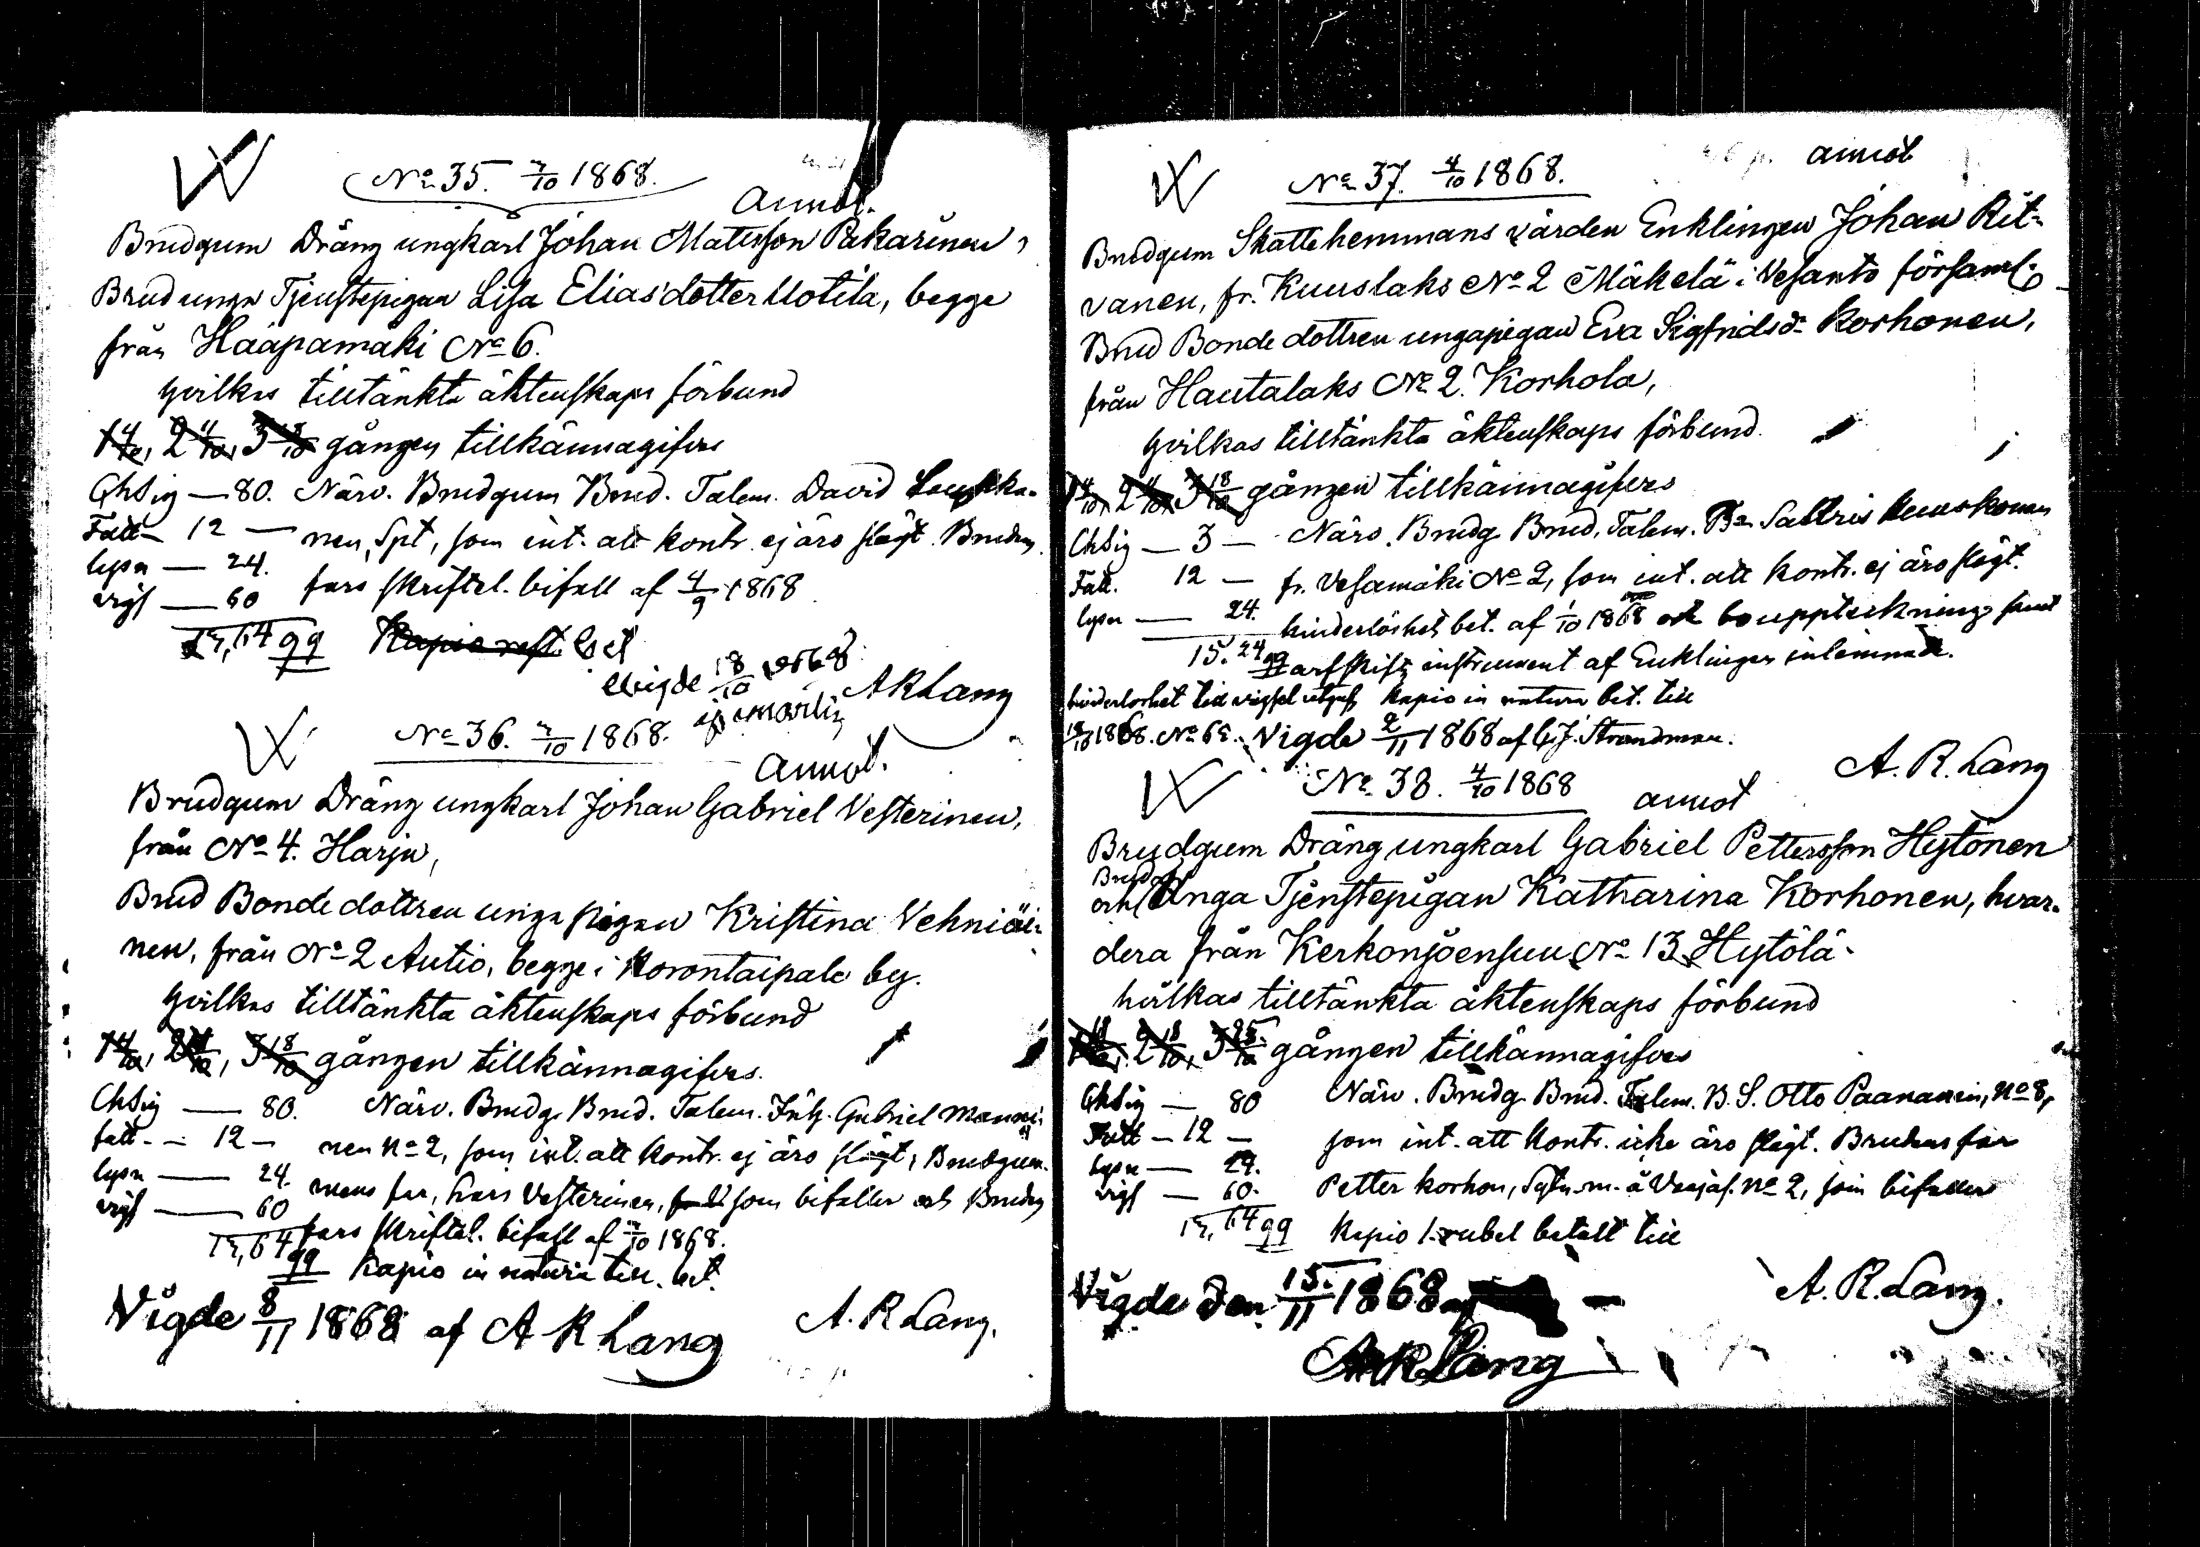 No 35. 3/10 1868.
Annot.
Brudgum Dräng ungkarl Johan Matsson Pakarinen,
Brud unga Tjenstepigan Lisa Eliasdotter Uotila, begge
från Haapamäki No 6.
hvilkas tilltänkta äktenskaps förbund
1 4/10, 2 11/10, 3 18/10 gången tillkännagifves
ChSig — 80. Närv. Brudgum Brud. Talem. David
Fatt — 12 — nen, Spt, som int. att kontr. ej äro slägt. Brudens
lysn — 24. fars skriftel. bifall af 4/9 1868
vigs — 60
64 99
Vigde 18/10 1868
A R Lang
No 36. 3/10 1868.
Annot.
Brudgum Dräng ungkarl Johan Gabriel Vesterinen,
från No 4. Harju,
Brud Bonde dottren unga pigan Kristina Vehniäi-
nen, från No 2 Autio, begge i Horontaipale by.
hvilkas tilltänkta äktenskaps förbund
1 4/10, 2 11/10, 3 18/10 gången tillkännagifves.
ChSig — 80. Närv. Brudg. Brud. Talem. Gabriel Manni-
fatt. — 12 — nen No 2, som int. att kontr. ej äro slägt, Brudgum-
lysn — 24. mens far, Lars Vesterinen, som bifaller och Brudens
vigs — 60 fars skriftel. bifall af 3/10 1868.
64 99 Kapio in natura till. bet.
Vigde 8/11 1868 af A R Lang
A. R. Lang.
No 37. 4/10 1868.
annot
Brudgum Skattehemmans värden Enklingen Johan Rit-
vanen, fr. Kuuslaks No 2 Mäkelä i Vesanto församl.
Brud Bonde dottren ungapigan Eva Sigfridsdr Korhonen,
från Hautalaks No 2. Korhola,
hvilkas tilltänkta äktenskaps förbund.
1 4/10, 2 11/10, 3 18/10 gången tillkännagifves
ChSig — 3 — Närv. Brudg. Brud. Talem. Bn
Fatt. 12 — fr. Vesamäki No 2, som int. att kontr. ej äro slägt.
lysn — 24. hinderlöshets bet. af 1/10 1868 och bouppteckning samt
15. 24 99 arfskifts instrument af Enklingen inlemnade.
hinderlöshet till vigsel utgifs Kapio in natura bet. till
1868. No 62. Vigde 2/11 1868 af C. J. Strandman.
A. R. Lang
No 38. 4/10 1868
annot
Brudgum Dräng ungkarl Gabriel Pettersson Hytönen
Brud
och Unga Tjenstepigan Katharina Korhonen, hvar-
dera från Kerkonjoensuu No 13 Hytölä.
hvilkas tilltänkta äktenskaps förbund
1 11/10, 2 18/10, 3 25/10 gången tillkännagifves
ChSig — 80 Närv. Brudg. Brud. Talem. B. S. Otto Paananen, No 8,
Fatt — 12 — som int. att kontr. icke äro slägt. Brudens far
lysn — 24. Petter Korhon, No 2, som bifaller
vigs — 60.
64 99 Kapio 1. rubel betalt till
A. R. Lang.
Vigde den 15/11 1868 af
A R Lang